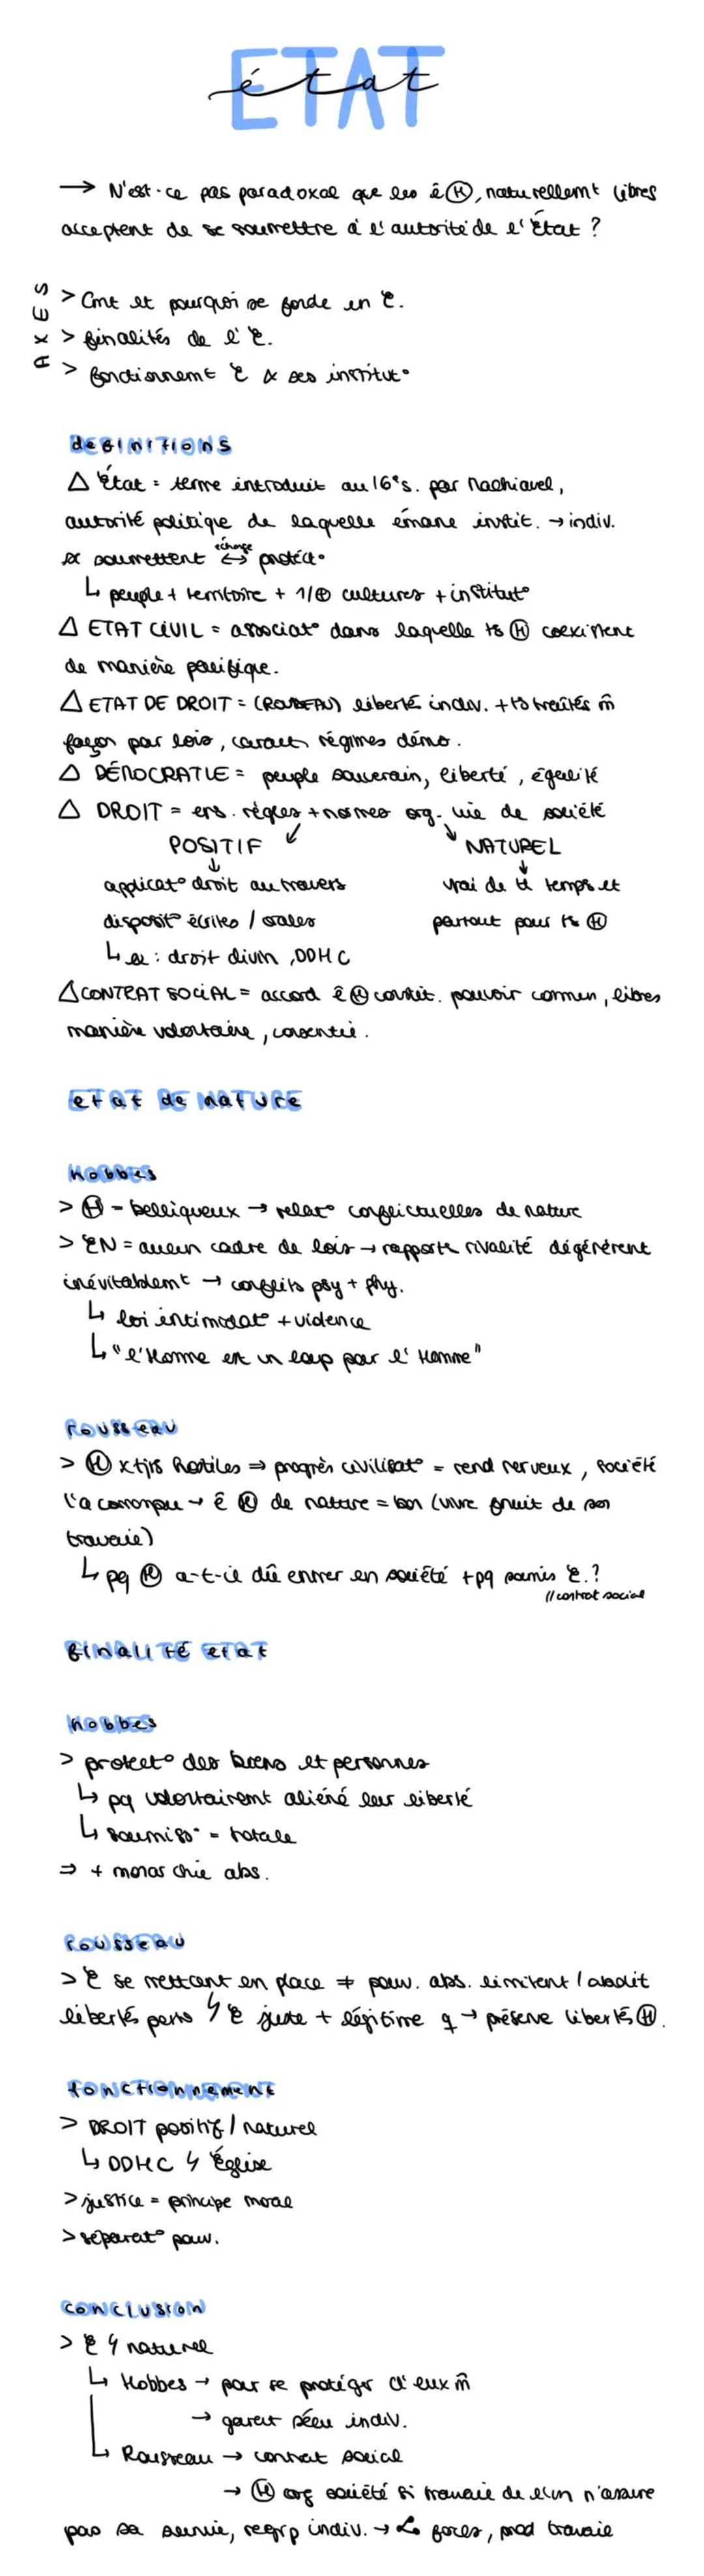 ETAT
état
→ N'est-ce pas paradoxal que les ê Ⓗ, naturellemt libres
acceptent de se soumettre à l'autorité de l'État ?
AXES
> Cmt et pourquoi se fonde en E.
> finalités de l'E.
> fonctionnemt E & ses institut°
DEFINITIONS
△ État = terme introduit au 16°s. par Machiavel,
autorité politique de laquelle émane instit. → indiv.
se soumettent ↔ échange protect°
↳ peuple + territoire + 1/⊕ cultures + institut°
△ ETAT CIVIL = associat° dans laquelle ts Ⓗ coexistent
de manière pacifique.
△ ETAT DE DROIT = (ROUSSEAU) liberté indiv. + ts traités m̂
façon par lois, caract. régimes démo.
△ DÉMOCRATIE = peuple souverain, liberté, égalité
△ DROIT = ens. règles + normes org. vie de société
POSITIF ↙ ↘ NATUREL
↓ ↓
applicat° droit au travers vrai de tt temps et
disposit° écrites / orales partout pour ts Ⓗ
↳ ex : droit divin, DDHC
△ CONTRAT SOCIAL = accord ê Ⓗ constit. pouvoir commun, libres
manière volontaire, consentie.
ETAT DE NATURE
HOBBES
> Ⓗ = belliqueux → relat° conflictuelles de nature
> EN = aucun cadre de lois → rapports rivalité dégénèrent
inévitablemt → conflits psy + phy.
↳ loi intimidat° + violence
↳ "l'Homme est un loup pour l'Homme"
ROUSSEAU
> Ⓗ x tjrs hostiles ⇒ progrès civilisat° = rend nerveux, société
l'a corrompu → ê Ⓗ de nature = bon (vivre fruit de son
travail)
↳ pq Ⓗ a-t-il dû entrer en société + pq soumis E.?
// contrat social
FINALITÉ ETAT
HOBBES
> protect° des biens et personnes
↳ pq volontairemt aliéné leur liberté
↳ soumiss° = totale
⇒ + monarchie abs.
ROUSSEAU
> E se mettant en place ≠ pouv. abs. limitent / abolit
libertés perso ϟ E juste + légitime q → préserve libertés Ⓗ.
FONCTIONNEMENT
> DROIT positif / naturel
↳ DDHC ϟ Église
> justice = principe moral
> séparat° pouv.
CONCLUSION
> E ϟ naturel
↳ Hobbes → pour se protéger d'eux m̂
→ garant sécu indiv.
↳ Rousseau → contrat social
→ Ⓗ org société si travail de l'un n'assure
pas sa survie, regrp indiv. → forces, prod travail